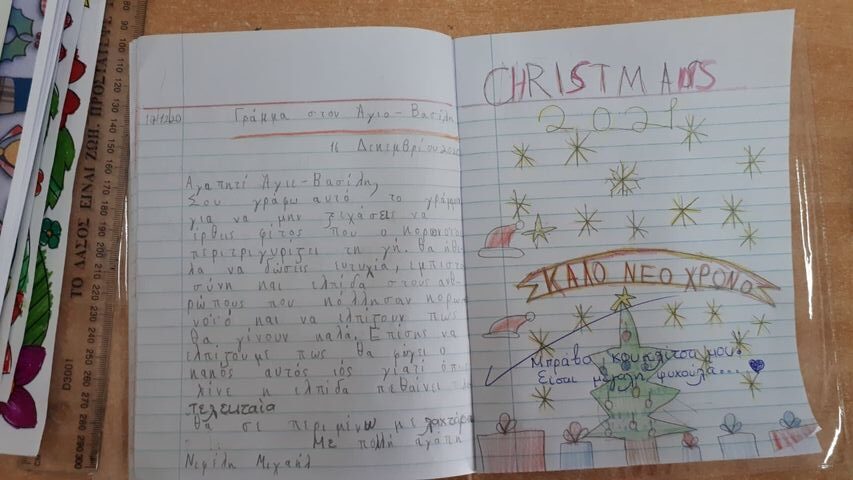 Γράμμα στον Άγιο-Βασίλη
16 Δεκεμβρίου
Αγαπητέ Άγιε-Βασίλη,
Σου γράφω αυτό το γράμμα
για να μην ξεχάσεις να
έρθεις φέτος που ο κορωνοϊός
περιτριγυρίζει τη γή. θα ήθε
λα να δώσεις ευτυχία, εμπιστο
σύνη και ελπίδα στους ανθ
ρώπους που κόλλησαν κορω
νοϊό και να ελπίζουν πως
θα γίνουν καλά. Επίσης να
ελπίζουμε πως θα φύγει ο
κακός αυτός ιός γιατί όπως
λένε η ελπίδα πεθαίνει
τελευταία
θα σε περιμένω με λαχτάρα
Με πολλή αγάπη
Νεφέλη Μιχαήλ
CHRISTMAS
2021
ΚΑΛΟ ΝΕΟ ΧΡΟΝΟ
Μπράβο, κουκλίτσα μου!
Είσαι μεγάλη ψυχούλα...
ΤΟ ΔΑΣΟΣ ΕΙΝΑΙ ΖΩΗ. ΠΡΟΣΤΑΤΕΨΕ